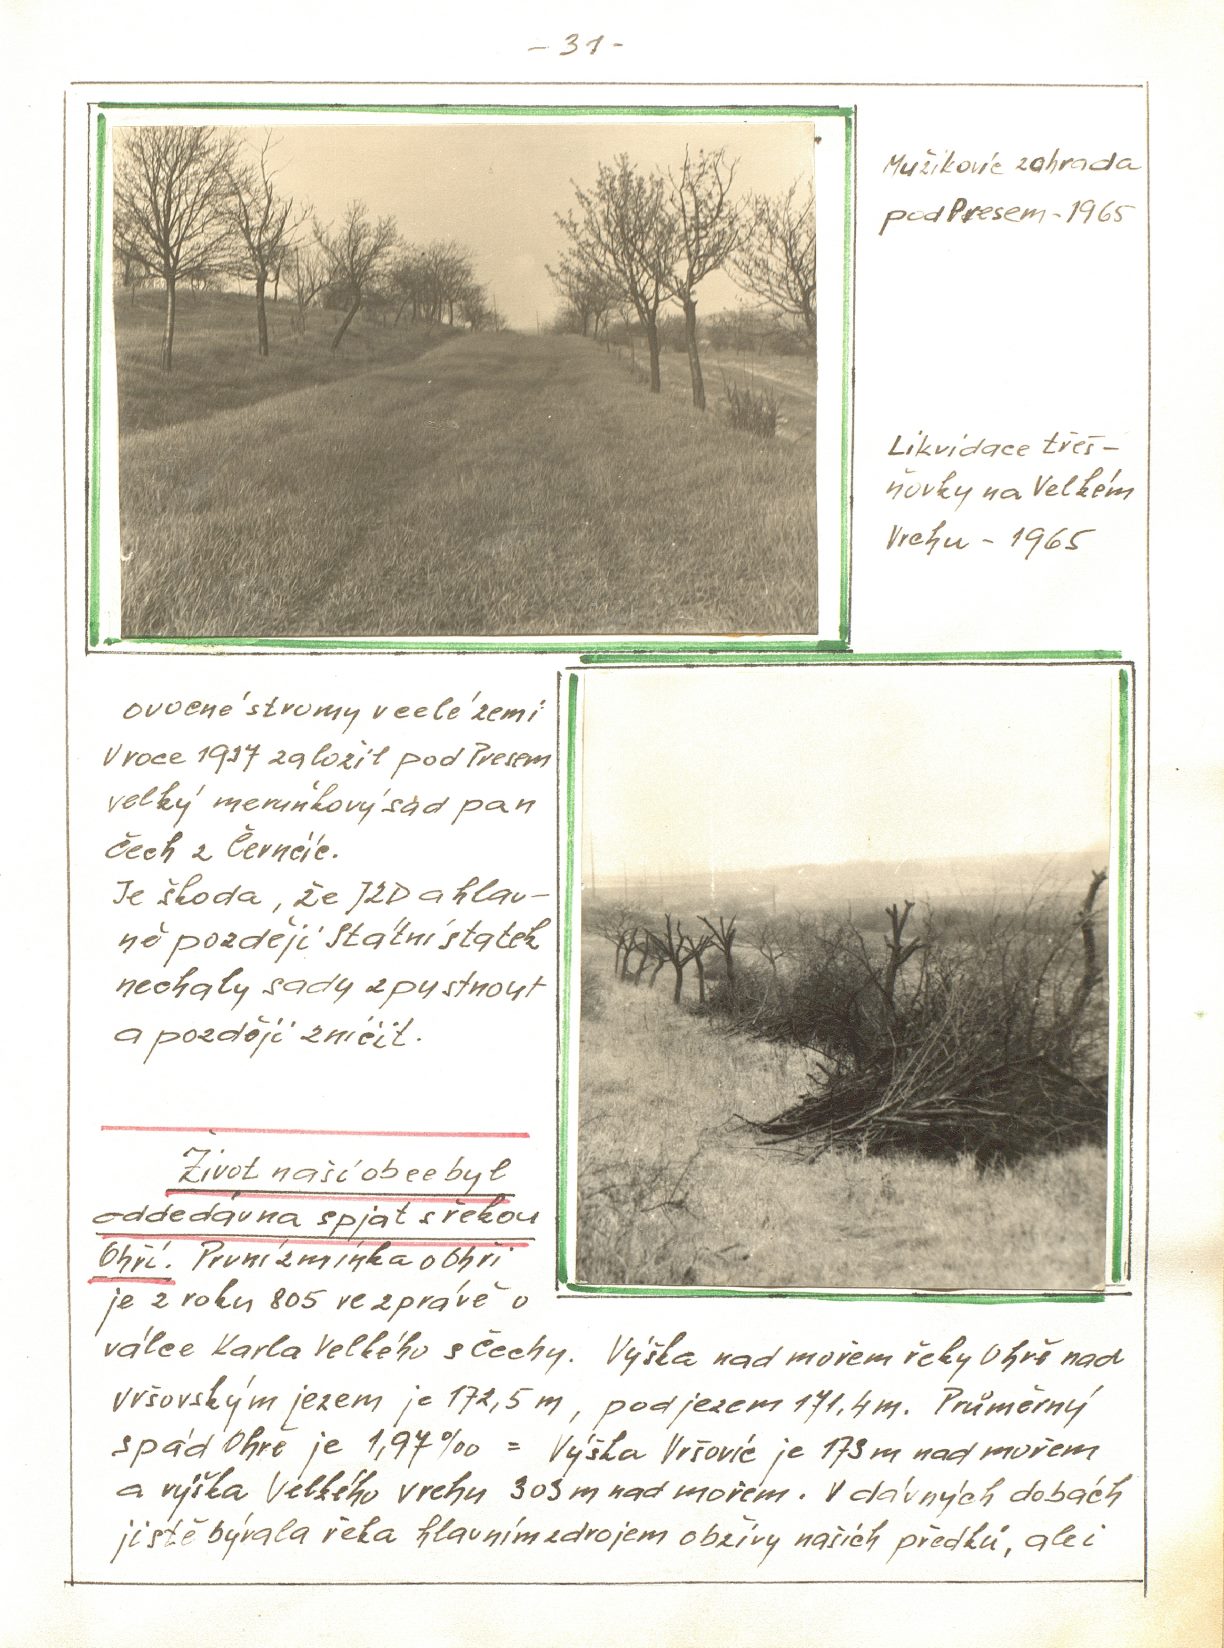 - 31 -
Mužíkovic zahrada
pod Presem - 1965
Likvidace třeš-
ňovky na Velkém
Vrchu - 1965
ovocné stromy v celé zemi
V roce 1937 založil pod Presem
velký meruňkový sad pan
Čech z Černčic.
Je škoda, že JZD a hlav-
ně později Státní statek
nechaly sady zpustnout
a později zničit.
Život naší obce byl
oddedávna spjat s řekou
Ohří. První zmínka o Ohři
je z roku 805 ve zprávě o
válce Karla Velkého s Čechy. Výška nad mořem řeky Ohře nad
vršovským jezem je 172,5 m, pod jezem 171,4 m. Průměrný
spád Ohře je 1,97 ‰ = Výška Vršovic je 173 m nad mořem
a výška Velkého vrchu 303 m nad mořem. V dávných dobách
jistě bývala řeka hlavním zdrojem obživy našich předků, ale i